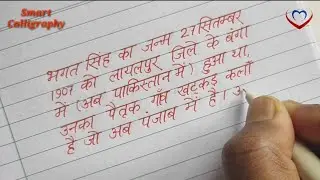 Smart
Calligraphy
भगत सिंह का जन्म 27 सितम्बर
1907 को लायलपुर जिले के बंगा
में (अब पाकिस्तान में) हुआ था,
उनका पैतृक गाँव खटकड़ कलाँ
है जो अब पंजाब में है। उ